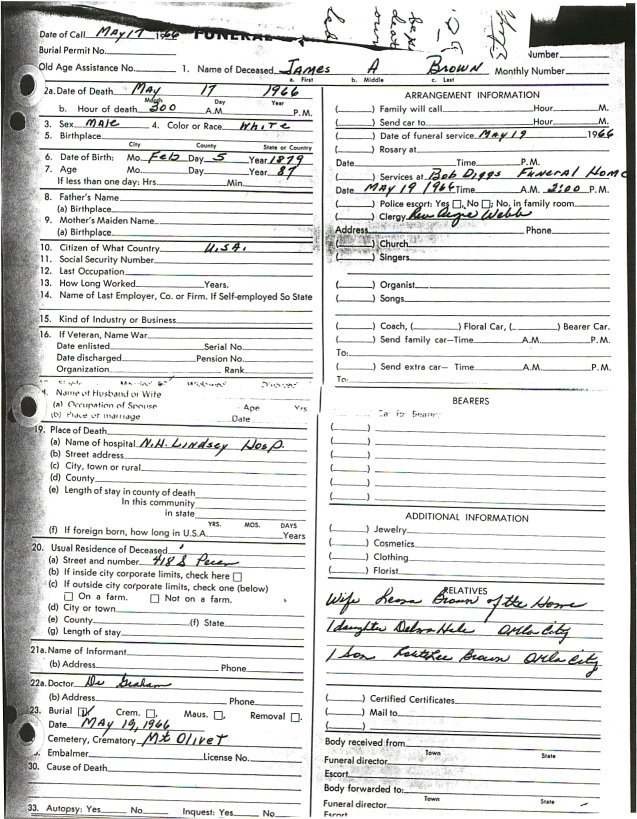 Date of Call May 17 1966 FUNERAL
Burial Permit No.
Number
Old Age Assistance No. 1. Name of Deceased James A Brown Monthly Number
a. First b. Middle c. Last
2a. Date of Death May 17 1966
Month Day Year
b. Hour of death 500 A.M. P.M.
3. Sex Male 4. Color or Race White
5. Birthplace
City County State or Country
6. Date of Birth: Mo. Feb Day 5 Year 1879
7. Age Mo. Day Year 87
If less than one day: Hrs. Min.
8. Father's Name
(a) Birthplace
9. Mother's Maiden Name
(a) Birthplace
10. Citizen of What Country U.S.A.
11. Social Security Number
12. Last Occupation
13. How Long Worked Years.
14. Name of Last Employer, Co. or Firm. If Self-employed So State
15. Kind of Industry or Business
16. If Veteran, Name War
Date enlisted Serial No.
Date discharged Pension No.
Organization Rank
Name of Husband or Wife
(a) Occupation of Spouse Age Yrs
(b) Place of marriage Date
19. Place of Death
(a) Name of hospital N.H. Lindsey Hosp.
(b) Street address
(c) City, town or rural
(d) County
(e) Length of stay in county of death
In this community
in state
YRS. MOS. DAYS
(f) If foreign born, how long in U.S.A. Years
20. Usual Residence of Deceased
(a) Street and number 418 S Pecan
(b) If inside city corporate limits, check here
(c) If outside city corporate limits, check one (below)
On a farm. Not on a farm.
(d) City or town
(e) County (f) State
(g) Length of stay
21a. Name of Informant
(b) Address Phone
22a. Doctor Dr Graham
(b) Address Phone
23. Burial Crem. Maus. Removal
Date May 19, 1966
Cemetery, Crematory Mt Olivet
Embalmer License No.
30. Cause of Death
33. Autopsy: Yes No Inquest: Yes No
ARRANGEMENT INFORMATION
( ) Family will call Hour M.
( ) Send car to Hour M.
( ) Date of funeral service May 19 1966
( ) Rosary at
Date Time P.M.
( ) Services at Bob Diggs Funeral Home
Date May 19 1966 Time A.M. 2:00 P.M.
( ) Police escort: Yes , No ; No. in family room
( ) Clergy Rev Webb
Address Phone
( ) Church
( ) Singers
( ) Organist
( ) Songs
( ) Coach, ( ) Floral Car, ( ) Bearer Car.
( ) Send family car—Time A.M. P.M.
To:
( ) Send extra car— Time A.M. P.M.
To:
BEARERS
Car for Bearers
ADDITIONAL INFORMATION
( ) Jewelry
( ) Cosmetics
( ) Clothing
( ) Florist
RELATIVES
Wife Brown of the Home
1 daughter City
1 Son Brown City
( ) Certified Certificates
( ) Mail to
( )
Body received from
Town State
Funeral director
Escort
Body forwarded to:
Town State
Funeral director
Escort